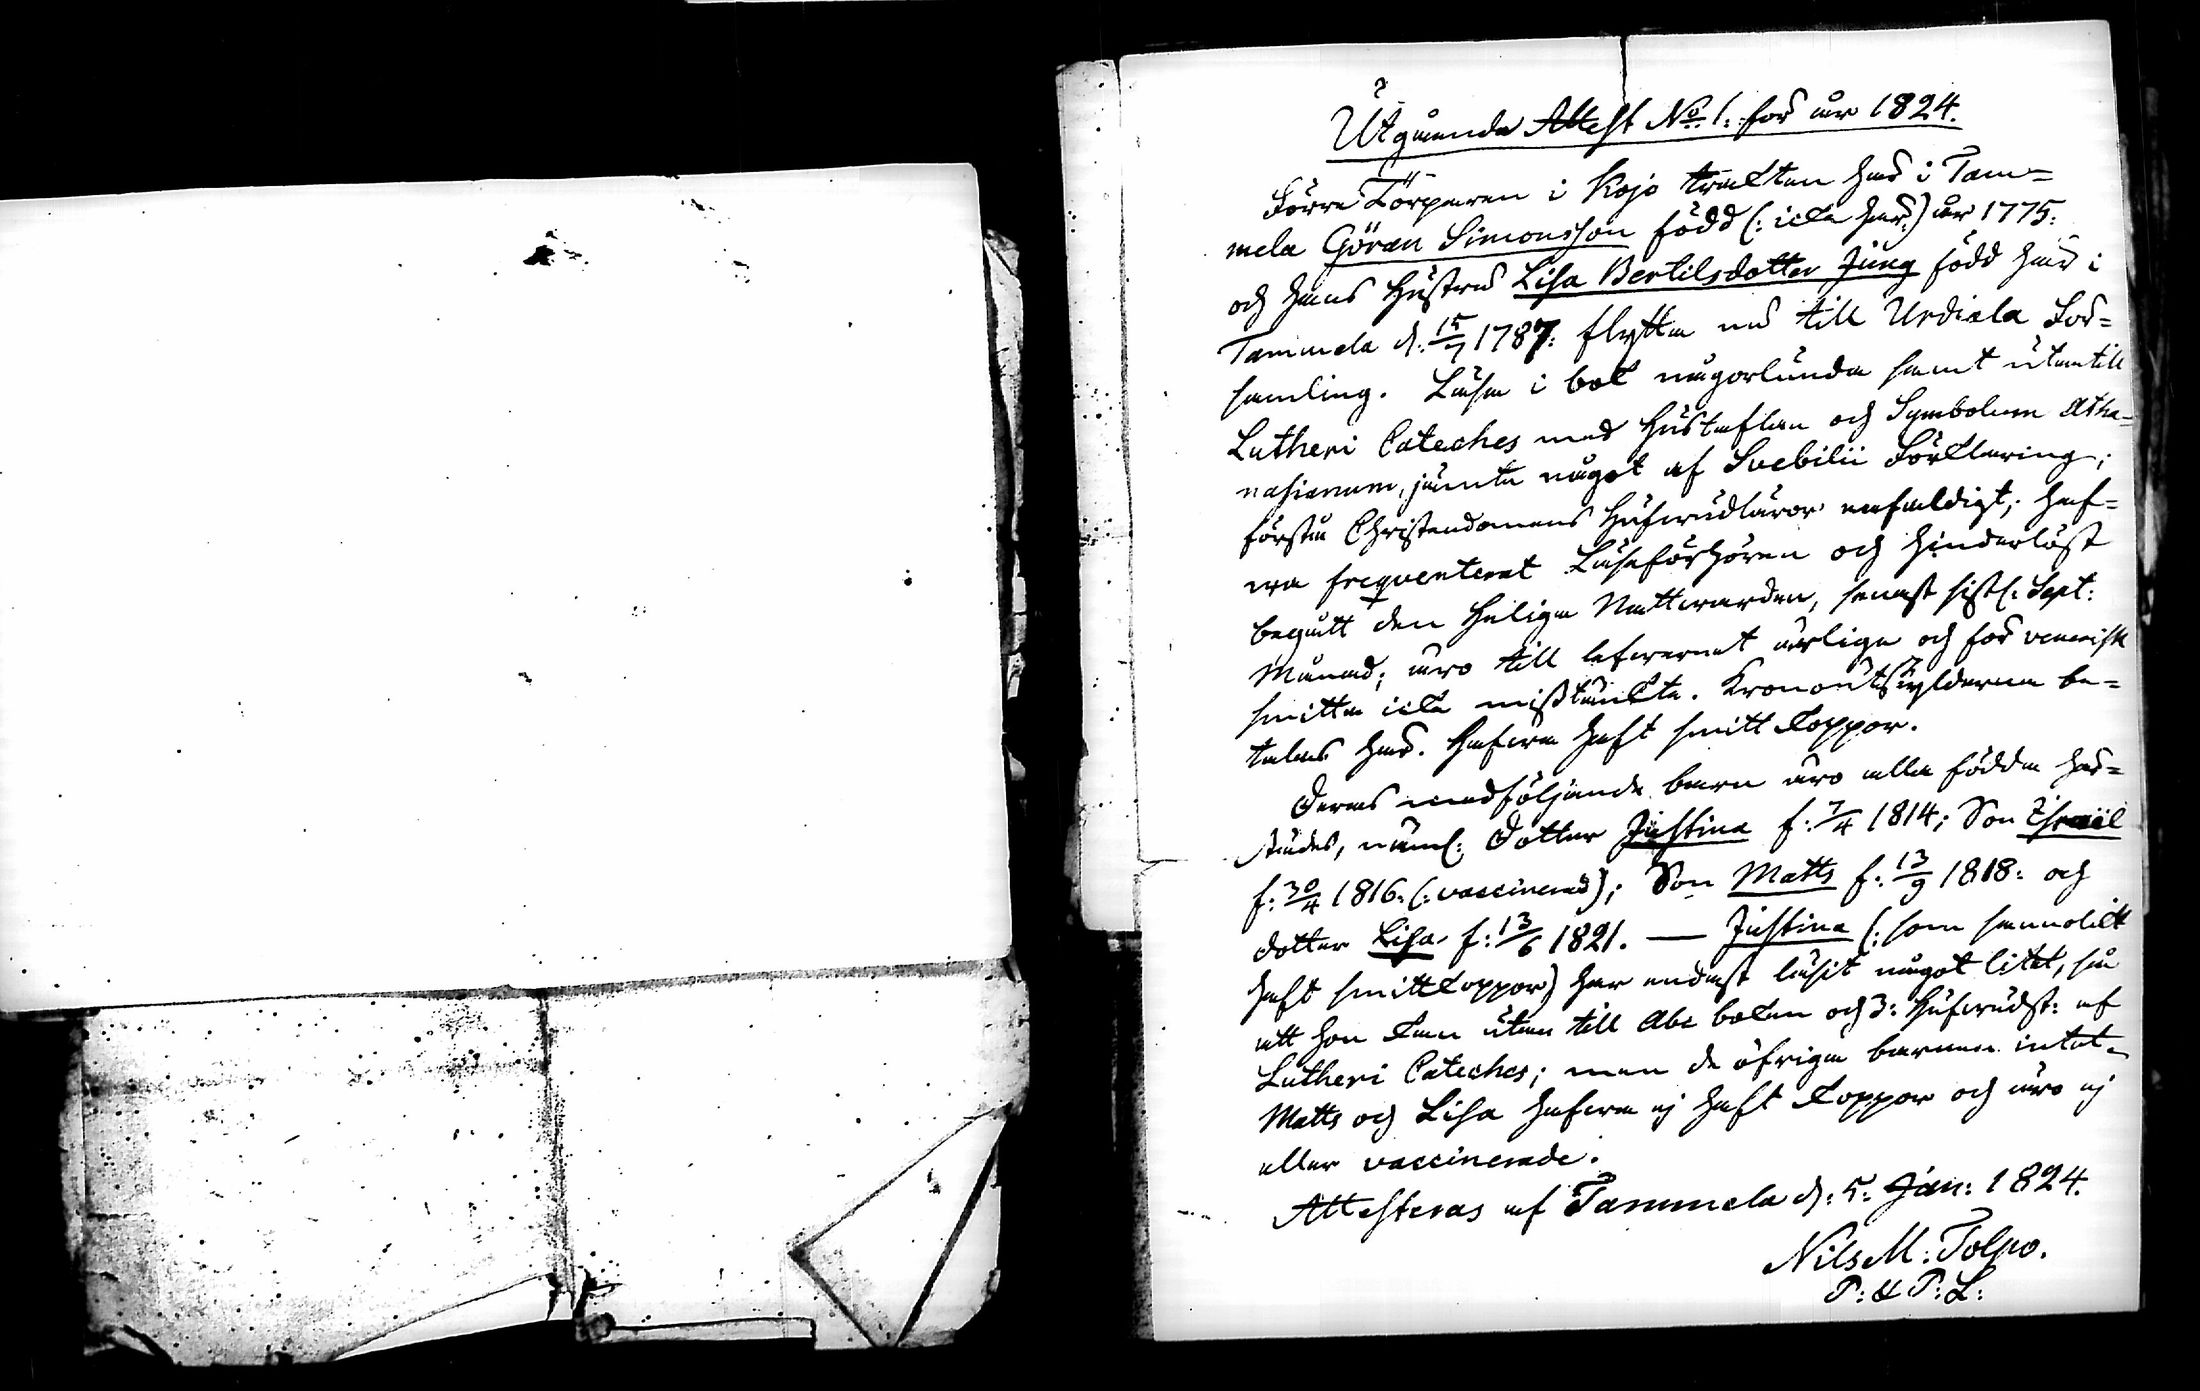 Utgående Attest No 1. för år 1824.
Förre Torparen i Kojo trakten här i Tam=
mela Göran Simonsson född (: icke här:) år 1775:
och hans Hustru Lisa Bertilsdotter Jung född här i
Tammela d: 15/7 1787: flytta nu till Urdiala För=
samling. Läsa i bok någorlunda samt utantill
Lutheri Cateches med Hustaflan och Symbolum Atha=
nasianum, jämte något af Svebilii Förklaring;
förstå Christendomens Hufvudläror enfaldigt; haf=
va frequenterat Läseförhören och hinderlöst
begått den Heliga Nattvarden, senast sistl: Sept:
Månad; äro till lefvernet ärliga och för venerisk
smitta icke misstänkte. Kronoutskylderna be=
talas här. Hafva haft smittkoppor.
Deras medföljande barn äro alla födda här=
städes, näml: Dotter Justina f: 7/4 1814; Son Israël
f: 30/4 1816. (: vaccinerad); Son Matts f: 13/9 1818: och
dotter Lisa f: 13/6 1821. — Justina (: som sannolikt
haft smittkoppor) har endast läsit något litet, så
att hon kan utan till Abc boken och 3: Hufvudst: af
Lutheri Cateches; men de öfriga barnen intet.
Matts och Lisa hafva ej haft Koppor och äro ej
eller vaccinerade.
Attesteras af Tammela d: 5: Jan: 1824.
Nils M: Tolpo.
P: & P: L: